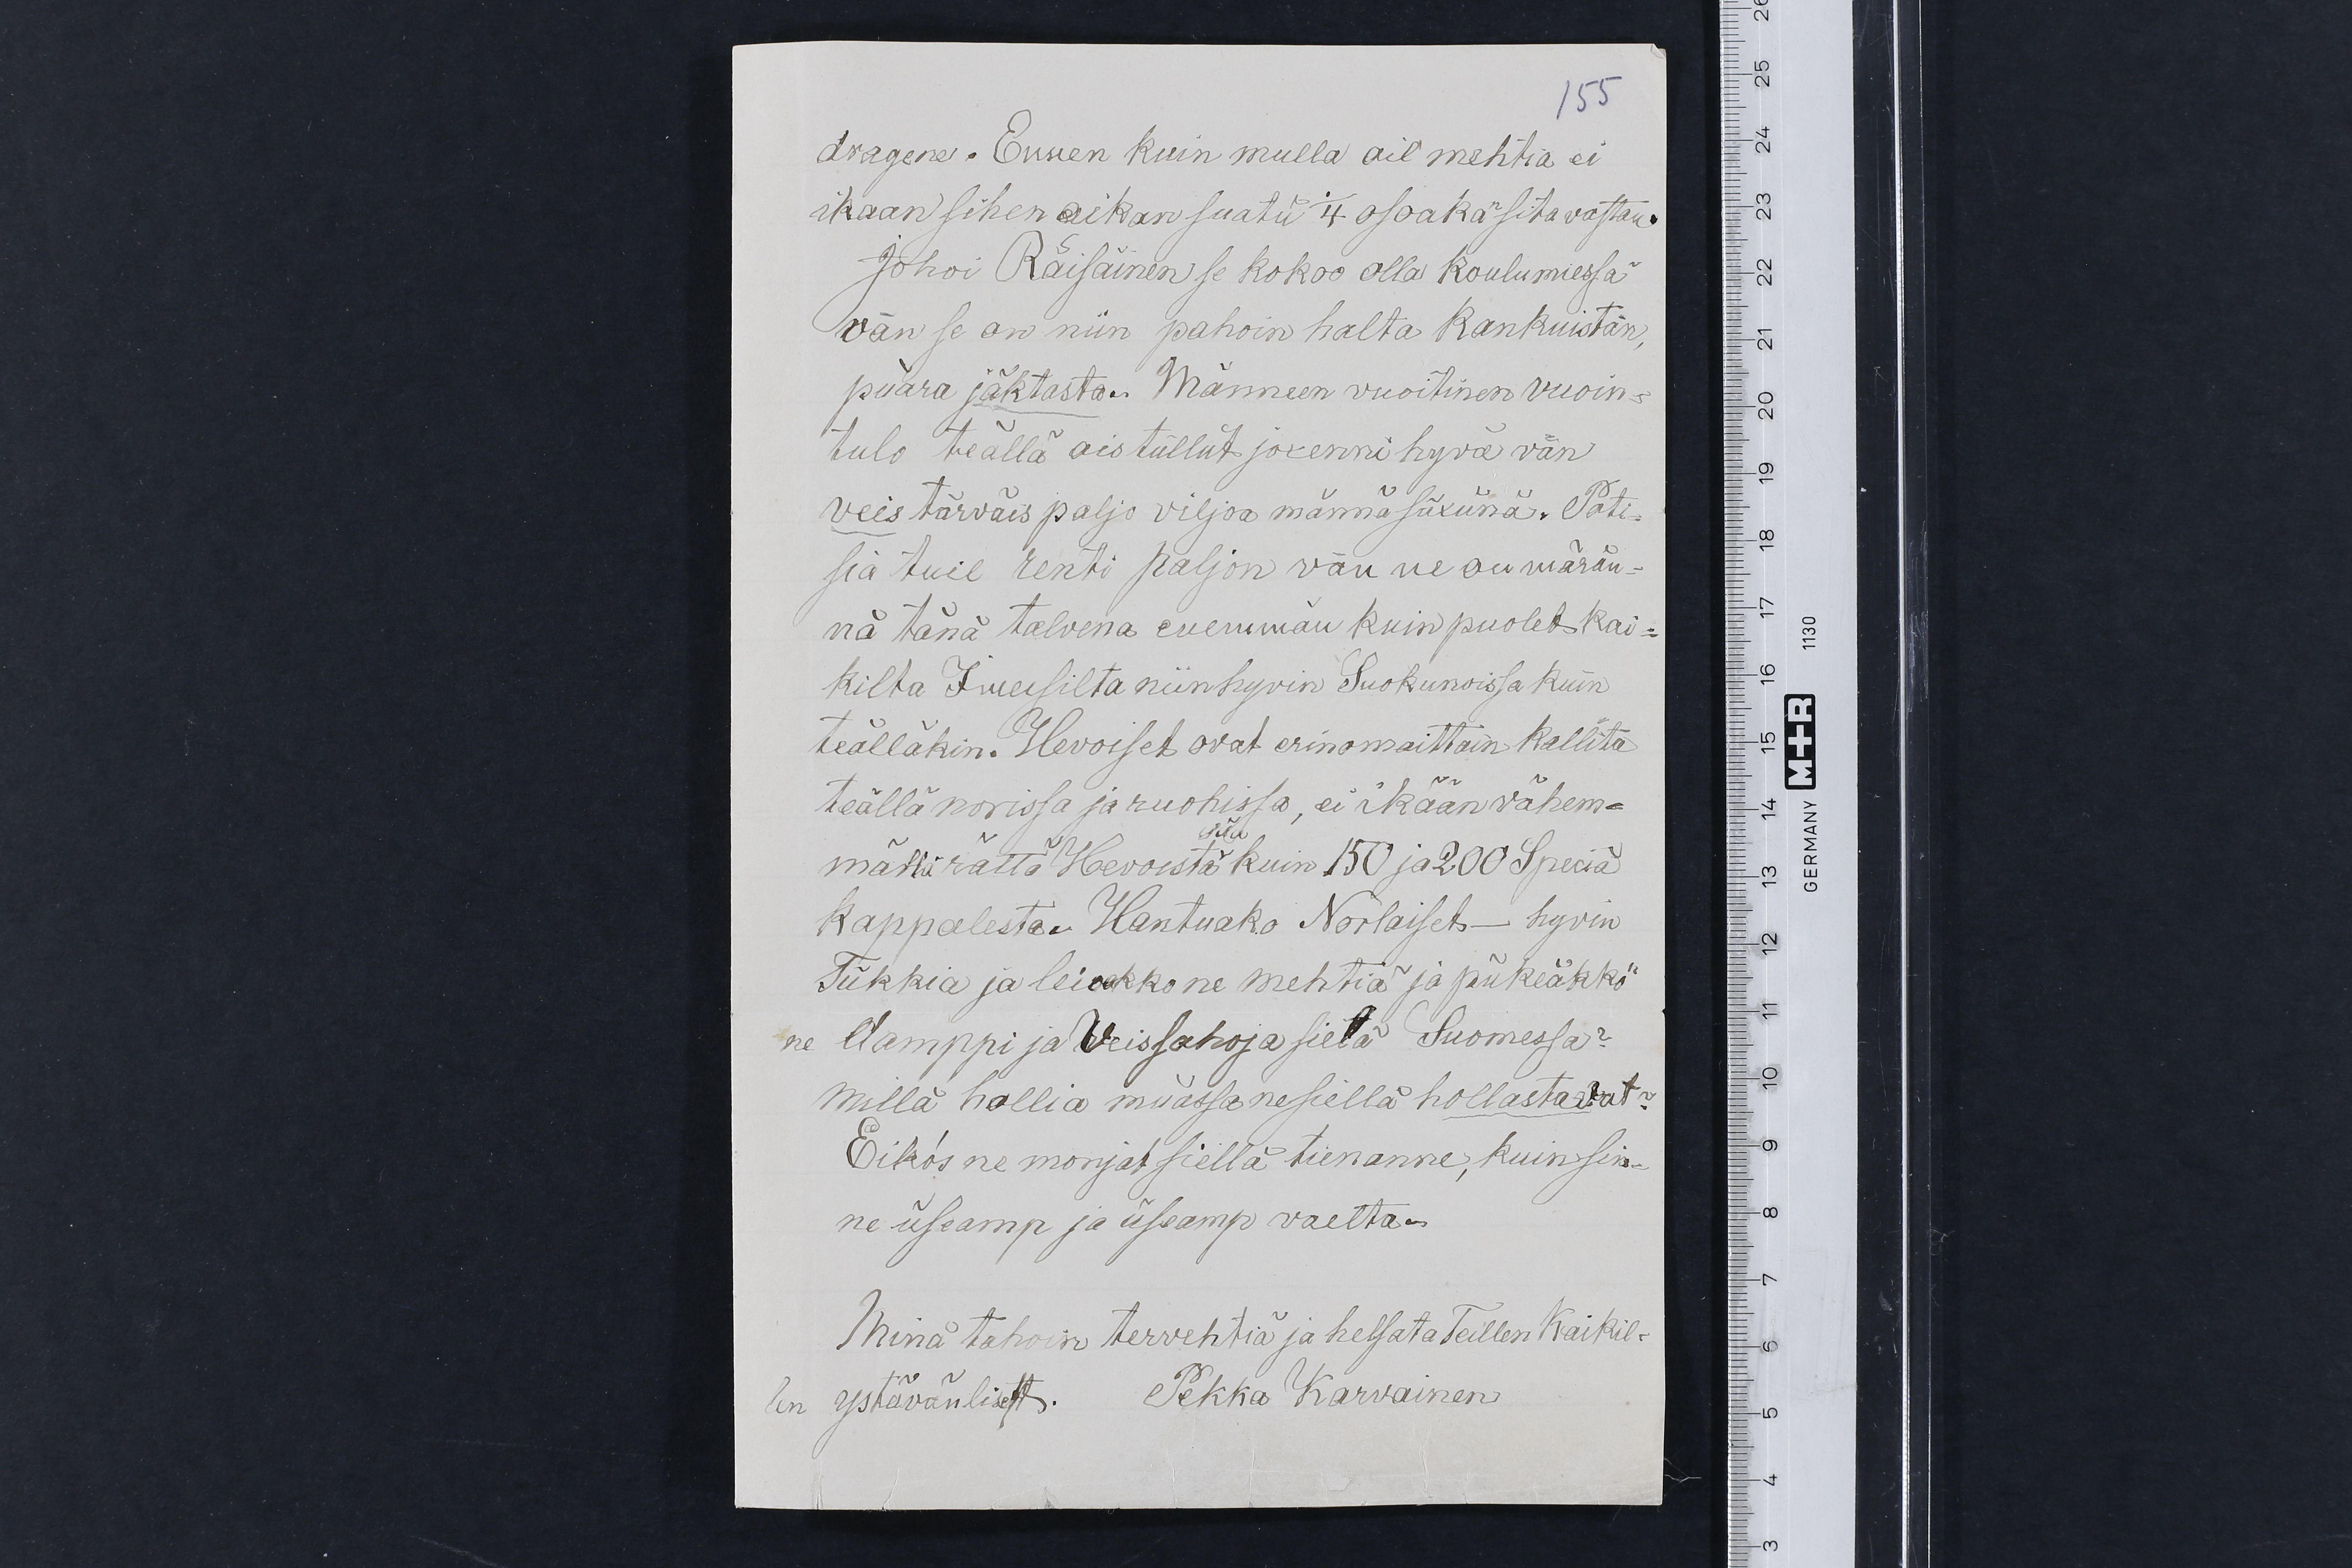 155
dragene. Ennen kuin mulla ail mehtia ei
ikaan sihen aikan suatü 1/4 osoakä sita vastan.
Johoi Räisäinen se kokoo olla koulumiessä
vän se on niin pahoin halta Kankuistan,
püara jäktasta. Männeen vuoitinen vuoin=
tulo teällä ais tüllüt joxenni hyvä vän
veis tärväis paljo viljoa männä süxünä. Pati-
sia tuil renti paljon vän ne on märän=
nä tänä talvena enemmän kuin puolet kai=
kilta Imeisilta niin hyvin Suokunoissa kuin
teälläkin. Hevoiset ovat erinomaittain kallita
teällä norissa ja ruohissa, ei ikään vähem=
mättä rättä Hevoistä kuin 150 ja 200 Speciä
kappalesta. Hantuako Norlaiset — hyvin
Tükkia ja leioakko ne mehtiä ja pükeäkkö
ne Damppi ja Veissahoja sielä Suomessa?
millä hallia müassa ne siellä hollastavat?
Eikös ne monjat siellä tienanne, kuin sin-
ne üseamp ja üseamp vaelta.
Minä tahoin tervehtiä ja helsata Teillen Kaikil-
len ystävänlisett. Pekka Karvainen
GERMANY M+R 1130
26
25
24
23
22
21
20
19
18
17
16
15
14
13
12
11
10
9
8
7
6
5
4
3